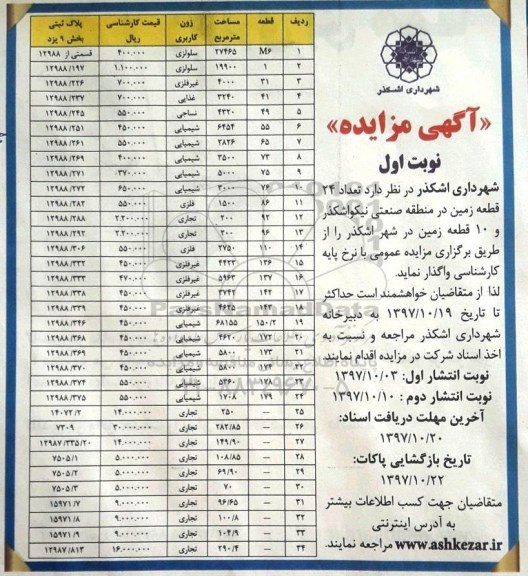 شهرداری اشکذر
«آگهی مزایده»
نوبت اول
شهرداری اشکذر در نظر دارد تعداد ۲۴
قطعه زمین در منطقه صنعتی نیکواشکذر
و ۱۰ قطعه زمین در شهر اشکذر را از
طریق برگزاری مزایده عمومی با نرخ پایه
کارشناسی واگذار نماید.
لذا از متقاضیان خواهشمند است حداکثر
تا تاریخ ۱۳۹۷/۱۰/۱۹ به دبیرخانه
شهرداری اشکذر مراجعه و نسبت به
اخذ اسناد شرکت در مزایده اقدام نمایند.
نوبت انتشار اول: ۱۳۹۷/۱۰/۰۳
نوبت انتشار دوم : ۱۳۹۷/۱۰/۱۰
آخرین مهلت دریافت اسناد:
۱۳۹۷/۱۰/۲۰
تاریخ بازگشایی پاکات:
۱۳۹۷/۱۰/۲۲
متقاضیان جهت کسب اطلاعات بیشتر
به آدرس اینترنتی
www.ashkezar.ir مراجعه نمایند.
ردیف قطعه مساحت مترمربع زون کاربری قیمت کارشناسی ریال پلاک ثبتی بخش ۹ یزد
۱ M۶ ۲۷۴۶۵ سلولزی ۴۰۰.۰۰۰ قسمتی از ۱۲۹۸۸
۲ ۱ ۱۹۹۰۰ سلولزی ۱.۱۰۰.۰۰۰ ۱۲۹۸۸/۱۹۷
۳ ۳۱ ۴۰۰۰ غیرفلزی ۷۰۰.۰۰۰ ۱۲۹۸۸/۲۲۶
۴ ۴۱ ۳۲۴۰ غذایی ۷۰۰.۰۰۰ ۱۲۹۸۸/۲۳۷
۵ ۴۹ ۴۳۲۰ نساجی ۵۵۰.۰۰۰ ۱۲۹۸۸/۲۴۵
۶ ۵۵ ۶۴۵۴ شیمیایی ۴۵۰.۰۰۰ ۱۲۹۸۸/۲۵۱
۷ ۶۵ ۲۸۲۶ شیمیایی ۵۵۰.۰۰۰ ۱۲۹۸۸/۲۶۱
۸ ۷۳ ۳۵۰۰ شیمیایی ۴۰۰.۰۰۰ ۱۲۹۸۸/۲۶۹
۹ ۷۵ ۵۰۰۰ شیمیایی ۳۷۰.۰۰۰ ۱۲۹۸۸/۲۷۱
۱۰ ۷۶ ۳۰۰۰ شیمیایی ۶۵۰.۰۰۰ ۱۲۹۸۸/۲۷۲
۱۱ ۸۶ ۱۵۰۰ فلزی ۵۵۰.۰۰۰ ۱۲۹۸۸/۲۸۲
۱۲ ۹۲ ۲۰۰ تجاری ۲.۲۰۰.۰۰۰ ۱۲۹۸۸/۲۸۸
۱۳ ۹۶ ۲۰۰ تجاری ۲.۲۰۰.۰۰۰ ۱۲۹۸۸/۲۹۲
۱۴ ۱۱۰ ۲۷۵۰ فلزی ۵۵۰.۰۰۰ ۱۲۹۸۸/۳۰۶
۱۵ ۱۳۶ ۴۴۲۳ غیرفلزی ۴۵۰.۰۰۰ ۱۲۹۸۸/۳۳۲
۱۶ ۱۳۷ ۵۹۶۳ غیرفلزی ۴۷۰.۰۰۰ ۱۲۹۸۸/۳۳۳
۱۷ ۱۴۲ ۳۷۴۲ غیرفلزی ۴۵۰.۰۰۰ ۱۲۹۸۸/۳۳۸
۱۸ ۱۴۳ ۴۶۲۵ غیرفلزی ۴۵۰.۰۰۰ ۱۲۹۸۸/۳۳۹
۱۹ ۱۵۰/۲ ۶۸۱۵۵ شیمیایی ۴۵۰.۰۰۰ ۱۲۹۸۸/۳۴۶
۲۰ ۱۷۲ ۴۶۲۰ شیمیایی ۴۵۰.۰۰۰ ۱۲۹۸۸/۳۶۸
۲۱ ۱۷۳ ۵۸۰۰ شیمیایی ۴۵۰.۰۰۰ ۱۲۹۸۸/۳۶۹
۲۲ ۱۷۴ ۵۸۰۰ شیمیایی ۴۵۰.۰۰۰ ۱۲۹۸۸/۳۷۰
۲۳ ۱۷۸ ۵۳۶۰ شیمیایی ۵۵۰.۰۰۰ ۱۲۹۸۸/۳۷۴
۲۴ ۱۷۹ ۱۷۰۸ شیمیایی ۵۵۰.۰۰۰ ۱۲۹۸۸/۳۷۵
۲۵ — ۲۵۰ تجاری ۱۴.۰۰۰.۰۰۰ ۱۴۰۷۲/۲
۲۶ — ۲۸۲/۸۵ تجاری ۳۰.۰۰۰.۰۰۰ ۷۳۰۹
۲۷ — ۱۴۹/۹۰ تجاری ۱۴.۰۰۰.۰۰۰ ۱۲۹۸۷/۳۳۵/۲۰
۲۸ — ۱۰۸/۸۵ تجاری ۵.۰۰۰.۰۰۰ ۷۵۰۵/۱
۲۹ — ۶۹/۹۰ تجاری ۵.۰۰۰.۰۰۰ ۷۵۰۵/۲
۳۰ — ۷۰ تجاری ۵.۰۰۰.۰۰۰ ۷۵۰۵/۳
۳۱ — ۹۶/۶۵ تجاری ۹.۰۰۰.۰۰۰ ۱۵۹۷۱/۷
۳۲ — ۱۰۰/۸ تجاری ۹.۰۰۰.۰۰۰ ۱۵۹۷۱/۸
۳۳ — ۱۰۴/۹ تجاری ۹.۰۰۰.۰۰۰ ۱۵۹۷۱/۹
۳۴ — ۲۹۰/۴ تجاری ۱۶.۰۰۰.۰۰۰ ۱۲۹۸۷/۸۱۳